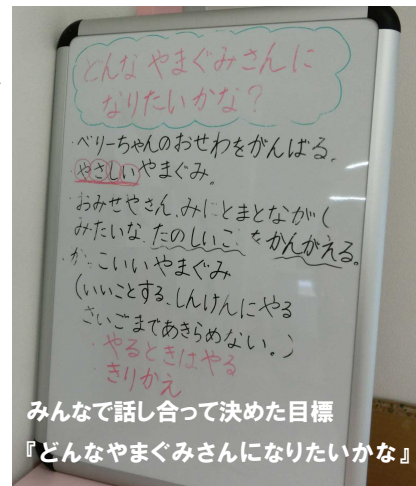 どんなやまぐみさんに
なりたいかな？
・ベリーちゃんのおせわをがんばる。
・やさしいやまぐみ。
・おみせやさん、みにとまとながし
みたいな、たのしいこをかんがえる。
・かっこいいやまぐみ
(いいことする、しんけんにやる
さいごまであきらめない。)
・やるときはやる
・きりかえ
みんなで話し合って決めた目標
『どんなやまぐみさんになりたいかな』